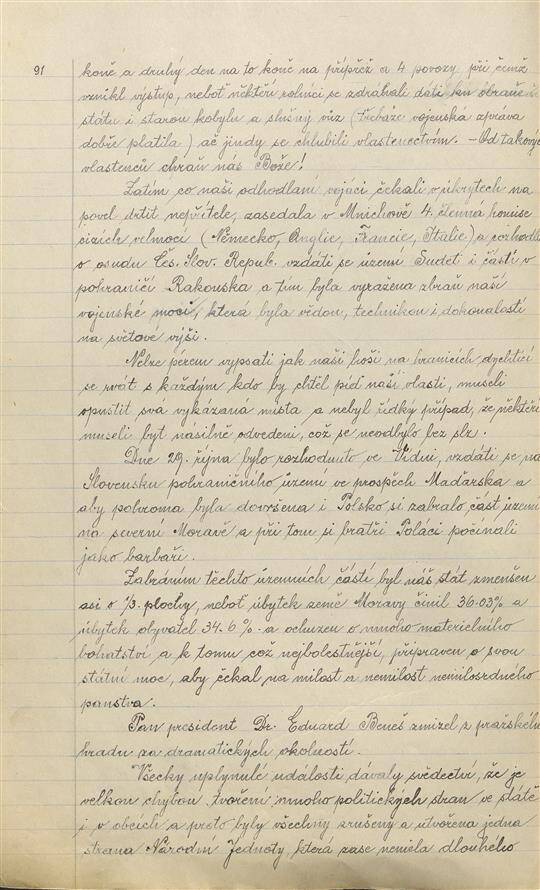 91
koně a druhý den na to koně na přípřež a 4 povozy při čemž
vznikl výstup, neboť někteří rolníci se zdráhali dáti ku obraně
státu i starou kobylu a slušný vůz (třebaže vojenská zpráva
dobře platila) ač jindy se chlubili vlastenectvím. – Od takových
vlastenců chraň nás Bože!
Zatím co naši odhodlaní vojáci čekali v úkrytech na
povel drtit nepřítele, zasedala v Mnichově 4. členná komise
cizích velmocí (Německo, Anglie, Francie, Italie) a rozhodla
o osudu Čes. Slov. Repub. vzdáti se území Sudet i částí v
pohraničí Rakouska a tím byla vyražena zbraň naší
vojenské moci, která byla vědou, technikou i dokonalostí
na světové výši.
Nelze pérem vypsati jak naši hoši na hranicích dychtící
se rvát s každým kdo by chtěl píď naší vlasti, museli
opustit svá vykázaná místa a nebyl řídký případ, že někteří
museli být násilně odvedeni, což se neodbylo bez slz.
Dne 29. října bylo rozhodnuto ve Vídni, vzdáti se na
Slovensku pohraničního území ve prospěch Maďarska a
aby pohroma byla dovršena i Polsko si zabralo část území
na severní Moravě a při tom si bratři Poláci počínali
jako barbaři.
Zabráním těchto územních částí byl náš stát zmenšen
asi o 1/3. plochy, neboť úbytek země Moravy činil 36.03% a
úbytek obyvatel 34.6%. a ochuzen o mnoho materielního
bohatství a k tomu což nejbolestnější, připraven o svou
státní moc, aby čekal na milost a nemilost nemilosrdného
panstva.
Pan president Dr. Eduard Beneš zmizel z pražského
hradu za dramatických okolností.
Všecky uplynulé události dávaly svědectví, že je
velkou chybou tvoření mnoho politických stran ve státě
i v obcích a proto byly všechny zrušeny a utvořena jedna
strana Národní Jednoty, která zase neměla dlouhého